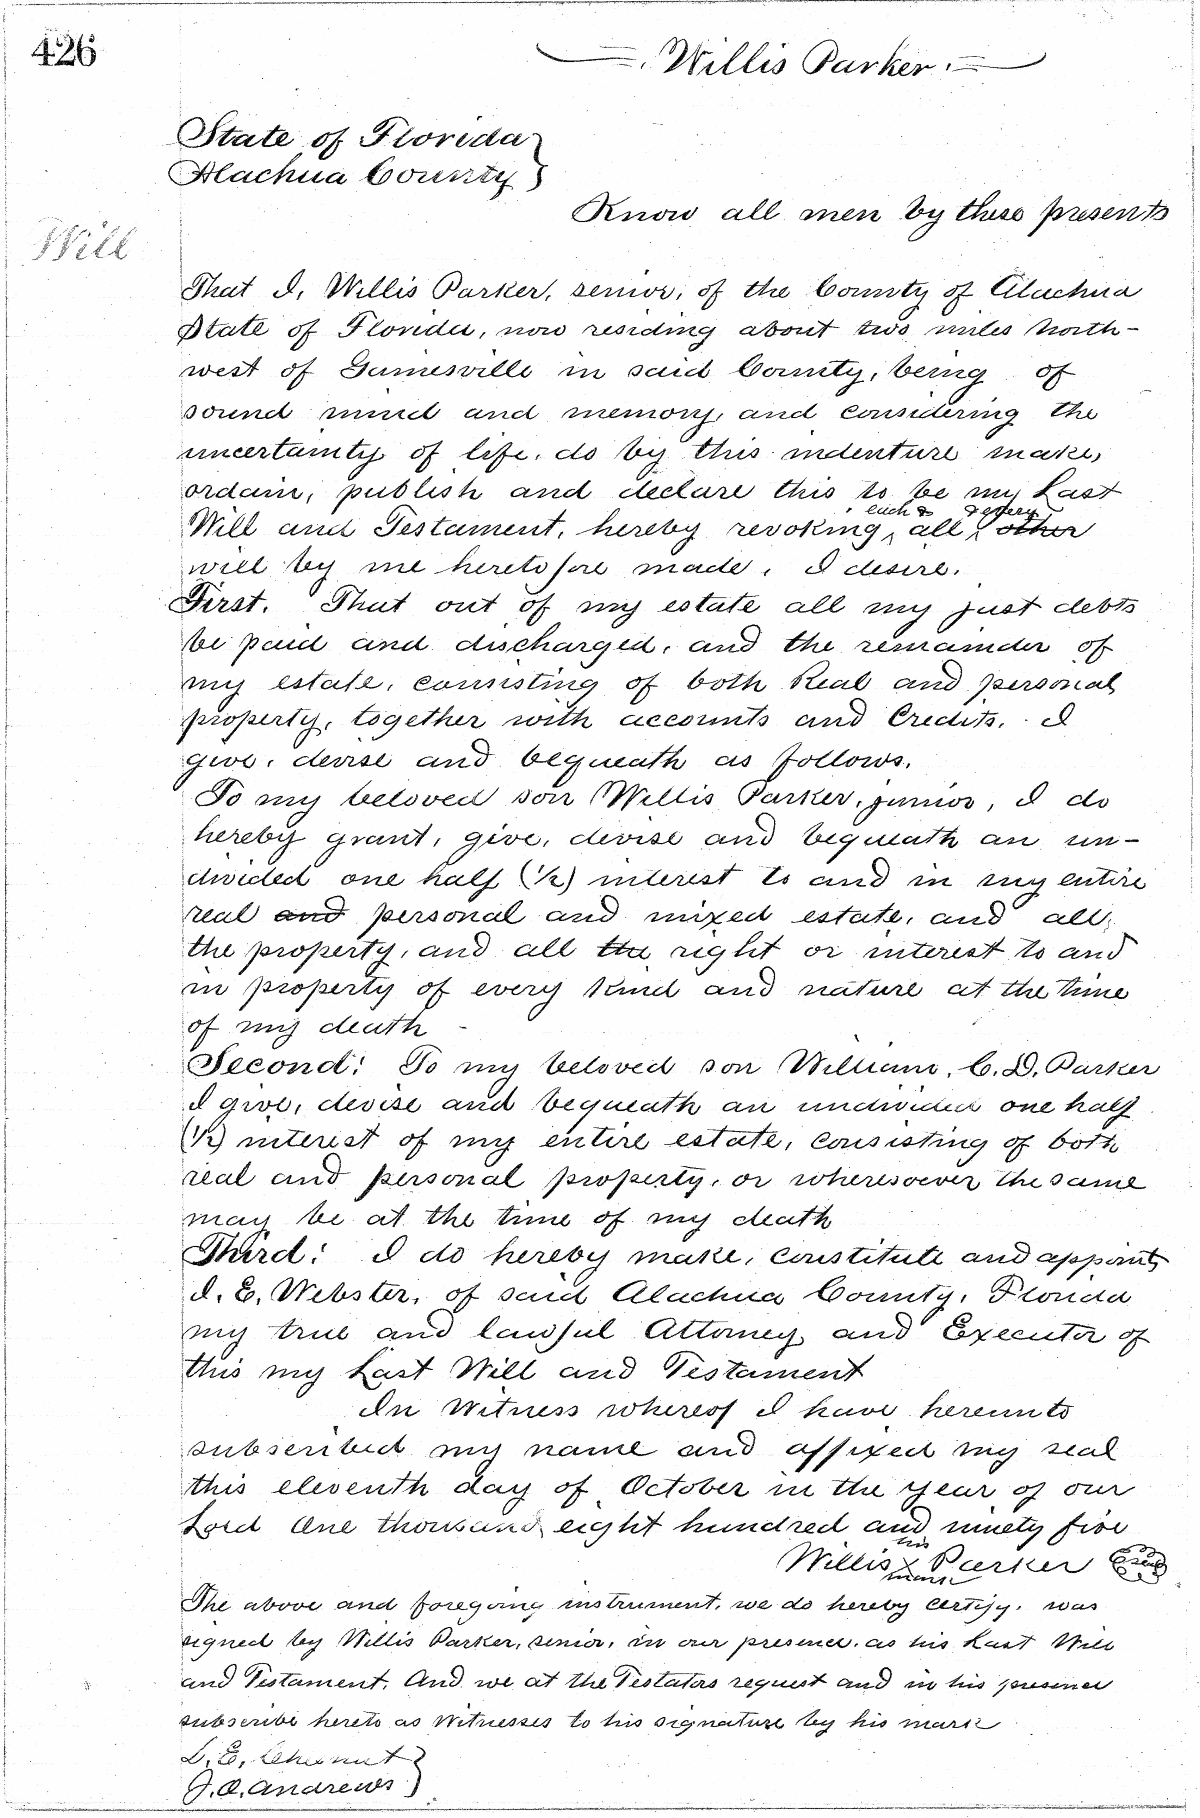 426
Willis Parker.
State of Florida
Alachua County
Know all men by these presents
Will
That I, Willis Parker, senior, of the County of Alachua
State of Florida, now residing about two miles North-
west of Gainesville in said County, being of
sound mind and memory, and considering the
uncertainty of life, do by this indenture make,
ordain, publish and declare this to be my Last
each & & every
Will and Testament, hereby revoking, all other
will by me heretofore made. I desire.
First. That out of my estate all my just debts
be paid and discharged, and the remainder of
my estate, consisting of both Real and personal
property, together with accounts and Credits. I
give, devise and bequeath as follows.
To my beloved son Willis Parker, junior, I do
hereby grant, give, devise and bequeath an un-
divided one half (½) interest to and in my entire
real and personal and mixed estate, and all
the property, and all the right or interest to and
in property of every kind and nature at the time
of my death
Second: To my beloved son William, C. D. Parker
I give, devise and bequeath an undivided one half
(½) interest of my entire estate, consisting of both
real and personal property, or wheresoever the same
may be at the time of my death
Third: I do hereby make, constitute and appoint
I. E. Webster, of said Alachua County, Florida
my true and lawful Attorney and Executor of
this my Last Will and Testament
In Witness whereof I have hereunto
subscribed my name and affixed my seal
this eleventh day of October in the year of our
Lord One thousand eight hundred and ninety five
his
Willis x Parker Seal
mark
The above and foregoing instrument, we do hereby certify, was
signed by Willis Parker, senior, in our presence, as his Last Will
and Testament. And we at the Testators request and in his presence
subscribe hereto as Witnesses to his signature by his mark
L. E. Chesnut
J. A. Andrews